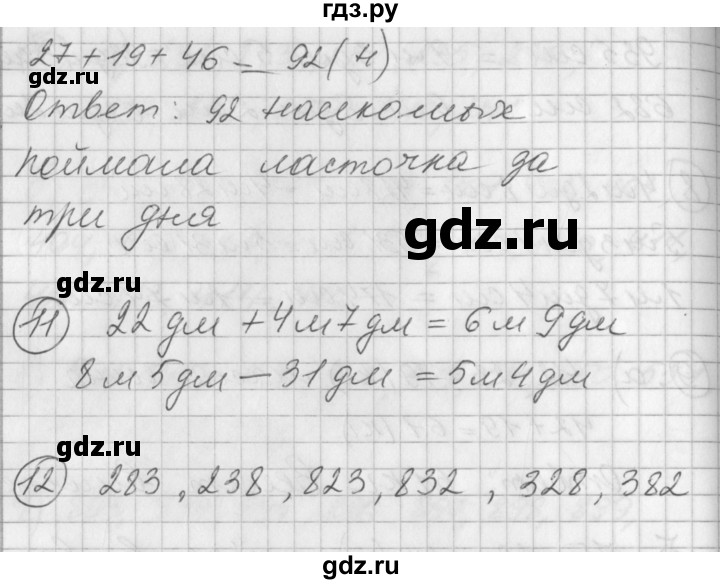 гдз.ру
27 + 19 + 46 = 92 (н)
Ответ: 92 насекомых
gdz.ru
поймала ласточка за
три дня
gdz.ru
gdz.ru
11 22 дм + 4 м 7 дм = 6 м 9 дм
8 м 5 дм - 31 дм = 5 м 4 дм
gdz.ru
12 283, 238, 823, 832, 328, 382
gdz.ru
gdz.ru